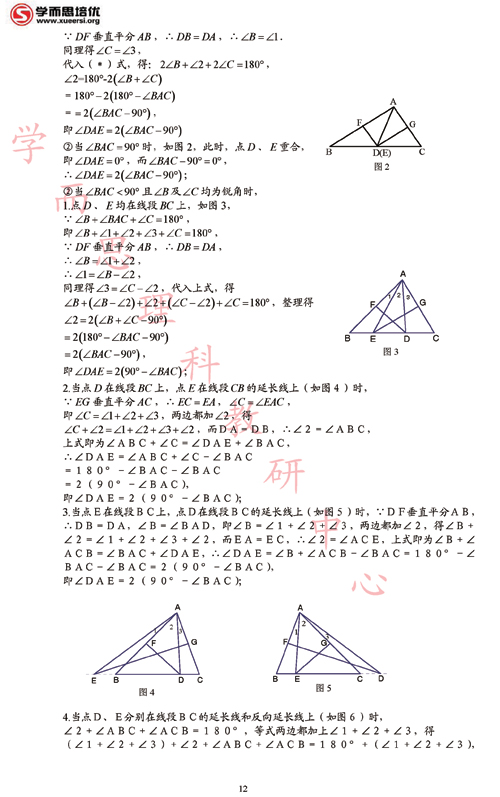 学而思培优
www.xueersi.org
∵DF垂直平分AB，∴DB=DA，∴∠B=∠1.
同理得∠C=∠3，
代入（*）式，得：2∠B+∠2+2∠C=180°，
∠2=180°-2(∠B+∠C)
=180°-2(180°-∠BAC)
==2(∠BAC-90°)，
即∠DAE=2(∠BAC-90°)
②当∠BAC=90°时，如图2，此时，点D、E重合，
即∠DAE=0°，而∠BAC-90°=0°，
∴∠DAE=2(∠BAC-90°)；
A
F
G
B
D(E)
C
图2
②当∠BAC<90°且∠B及∠C均为锐角时，
1.点D、E均在线段BC上，如图3，
∵∠B+∠BAC+∠C=180°，
即∠B+∠1+∠2+∠3+∠C=180°，
∵DF垂直平分AB，∴DB=DA，
∴∠B=∠1+∠2，
∴∠1=∠B-∠2，
同理得∠3=∠C-∠2，代入上式，得
∠B+(∠B-∠2)+∠2+(∠C-∠2)+∠C=180°，整理得
∠2=2(∠B+∠C-90°)
=2(180°-∠BAC-90°)
=2(∠BAC-90°)，
即∠DAE=2(90°-∠BAC)；
A
1 2 3
F
G
B
E
D
C
图3
2.当点D在线段BC上，点E在线段CB的延长线上（如图4）时，
∵EG垂直平分AC，∴EC=EA，∠C=∠EAC，
即∠C=∠1+∠2+∠3，两边都加∠2，得
∠C+∠2=∠1+∠2+∠3+∠2，而DA=DB，∴∠2=∠ABC，
上式即为∠ABC+∠C=∠DAE+∠BAC，
∴∠DAE=∠ABC+∠C-∠BAC
=180°-∠BAC-∠BAC
=2（90°-∠BAC），
即∠DAE=2（90°-∠BAC）；
3.当点E在线段BC上，点D在线段BC的延长线上（如图5）时，∵DF垂直平分AB，
∴DB=DA，∠B=∠BAD，即∠B=∠1+∠2+∠3，两边都加∠2，得∠B+
∠2=∠1+∠2+∠3+∠2，而EA=EC，∴∠2=∠ACE，上式即为∠B+∠
ACB=∠BAC+∠DAE，∴∠DAE=∠B+∠ACB-∠BAC=180°-∠
BAC-∠BAC=2（90°-∠BAC），
即∠DAE=2（90°-∠BAC）；
A
1 2 3
F
G
E
B
D
C
图4
A
1 2 3
F
G
B
E
C
D
图5
4.当点D、E分别在线段BC的延长线和反向延长线上（如图6）时，
∠2+∠ABC+∠ACB=180°，等式两边都加上∠1+∠2+∠3，得
（∠1+∠2+∠3）+∠2+∠ABC+∠ACB=180°+（∠1+∠2+∠3），
学而思理科教研中心
12